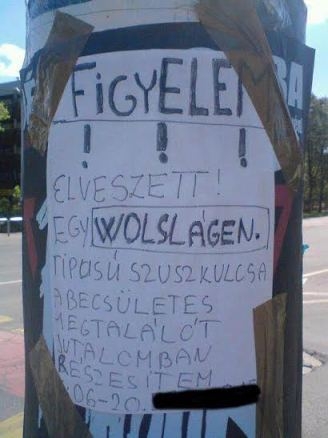 FIGYELEM
! ! !
ELVESZETT!
EGY WOLSLÁGEN.
TIPUSÚ SZUSZKULCSA
A BECSÜLETES
MEGTALÁLÓT
JUTALOMBAN
RÉSZESÍTEM
06-20.